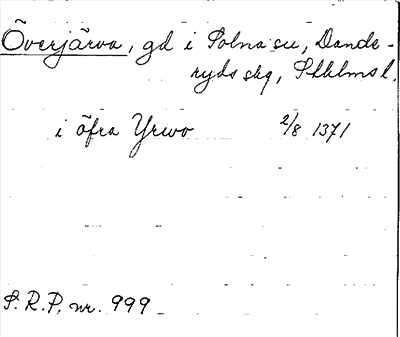 Överjärva, gd i Solna sn, Dande-
ryds skg, Sthlms l.
i öfra Yrwo 2/8 1371
S.R.P. nr. 999